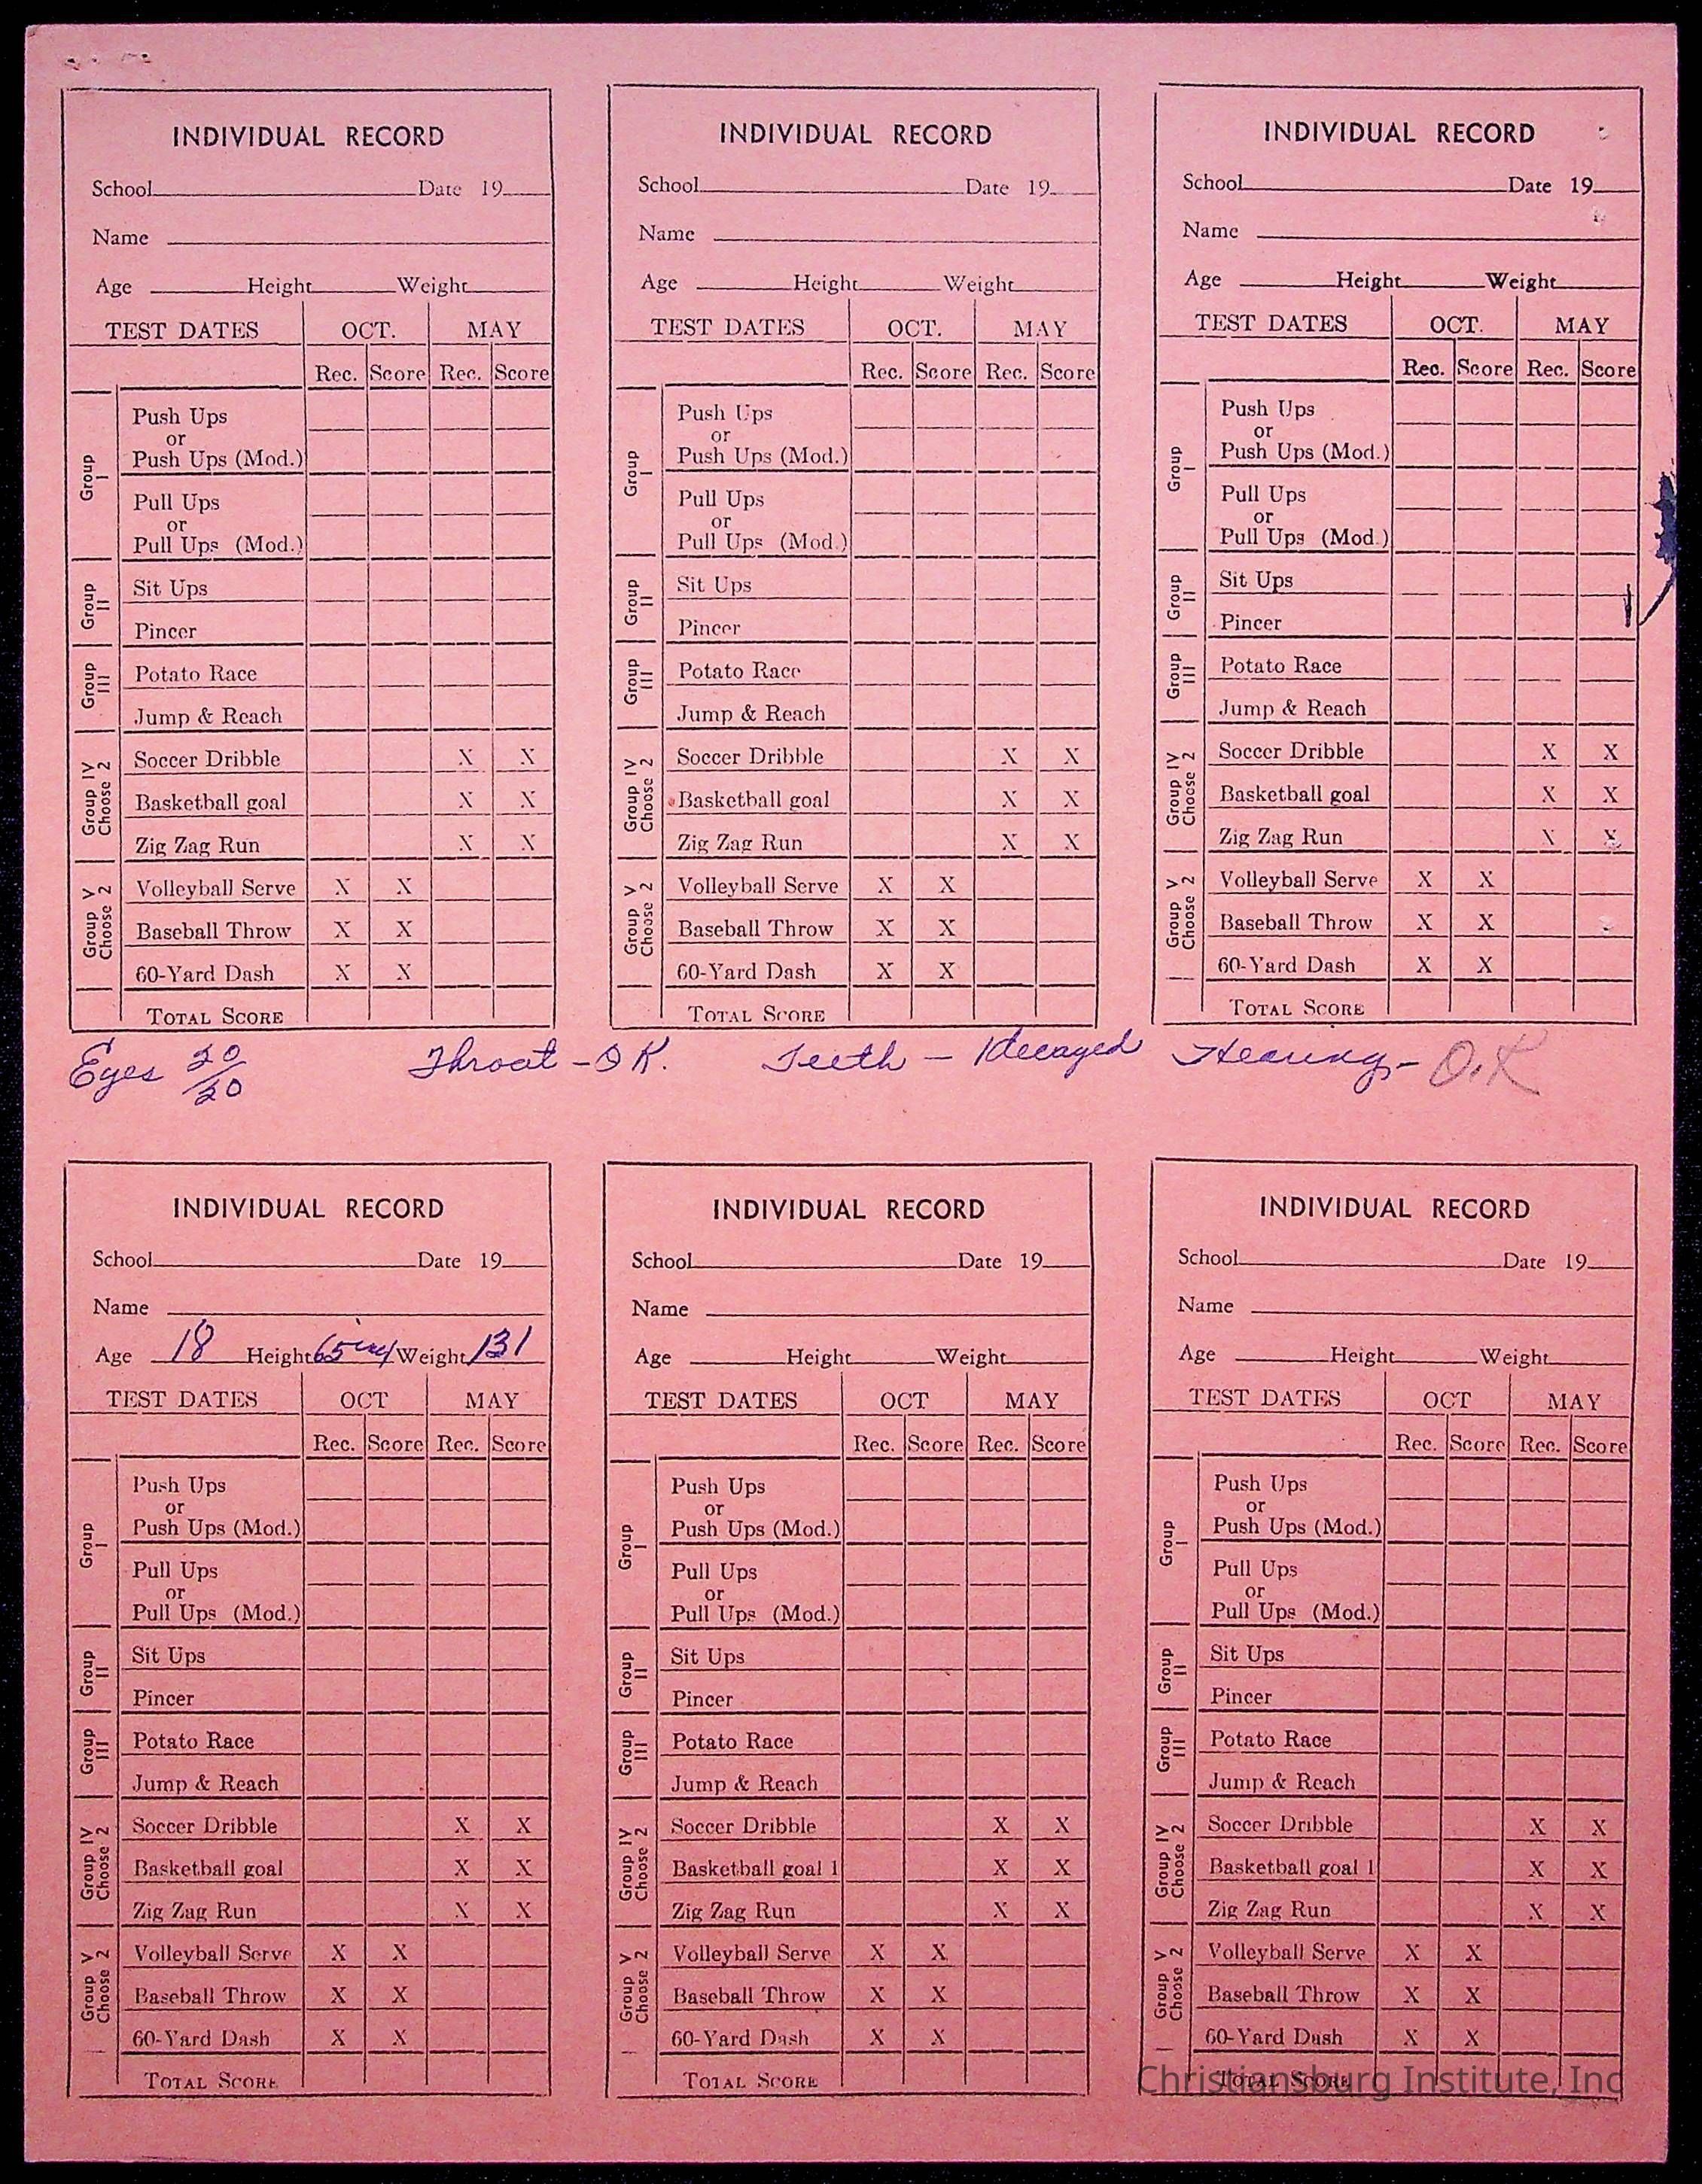 INDIVIDUAL RECORD
School Date 19
Name
Age Height Weight
TEST DATES OCT. MAY
Rec. Score Rec. Score
Group I
Push Ups
or
Push Ups (Mod.)
Pull Ups
or
Pull Ups (Mod.)
Group II
Sit Ups
Pincer
Group III
Potato Race
Jump & Reach
Group IV Choose 2
Soccer Dribble X X
Basketball goal X X
Zig Zag Run X X
Group V Choose 2
Volleyball Serve X X
Baseball Throw X X
60-Yard Dash X X
TOTAL SCORE
INDIVIDUAL RECORD
School Date 19
Name
Age Height Weight
TEST DATES OCT. MAY
Rec. Score Rec. Score
Group I
Push Ups
or
Push Ups (Mod.)
Pull Ups
or
Pull Ups (Mod.)
Group II
Sit Ups
Pincer
Group III
Potato Race
Jump & Reach
Group IV Choose 2
Soccer Dribble X X
Basketball goal X X
Zig Zag Run X X
Group V Choose 2
Volleyball Serve X X
Baseball Throw X X
60-Yard Dash X X
TOTAL SCORE
INDIVIDUAL RECORD
School Date 19
Name
Age Height Weight
TEST DATES OCT. MAY
Rec. Score Rec. Score
Group I
Push Ups
or
Push Ups (Mod.)
Pull Ups
or
Pull Ups (Mod.)
Group II
Sit Ups
Pincer
Group III
Potato Race
Jump & Reach
Group IV Choose 2
Soccer Dribble X X
Basketball goal X X
Zig Zag Run X X
Group V Choose 2
Volleyball Serve X X
Baseball Throw X X
60-Yard Dash X X
TOTAL SCORE
Eyes 20/20 Throat - O K. Teeth - 1 decayed Hearing - O.K
INDIVIDUAL RECORD
School Date 19
Name
Age 18 Height 65 Weight 131
TEST DATES OCT MAY
Rec. Score Rec. Score
Group I
Push Ups
or
Push Ups (Mod.)
Pull Ups
or
Pull Ups (Mod.)
Group II
Sit Ups
Pincer
Group III
Potato Race
Jump & Reach
Group IV Choose 2
Soccer Dribble X X
Basketball goal X X
Zig Zag Run X X
Group V Choose 2
Volleyball Serve X X
Baseball Throw X X
60-Yard Dash X X
TOTAL SCORE
INDIVIDUAL RECORD
School Date 19
Name
Age Height Weight
TEST DATES OCT MAY
Rec. Score Rec. Score
Group I
Push Ups
or
Push Ups (Mod.)
Pull Ups
or
Pull Ups (Mod.)
Group II
Sit Ups
Pincer
Group III
Potato Race
Jump & Reach
Group IV Choose 2
Soccer Dribble X X
Basketball goal 1 X X
Zig Zag Run X X
Group V Choose 2
Volleyball Serve X X
Baseball Throw X X
60-Yard Dash X X
TOTAL SCORE
INDIVIDUAL RECORD
School Date 19
Name
Age Height Weight
TEST DATES OCT MAY
Rec. Score Rec. Score
Group I
Push Ups
or
Push Ups (Mod.)
Pull Ups
or
Pull Ups (Mod.)
Group II
Sit Ups
Pincer
Group III
Potato Race
Jump & Reach
Group IV Choose 2
Soccer Dribble X X
Basketball goal 1 X X
Zig Zag Run X X
Group V Choose 2
Volleyball Serve X X
Baseball Throw X X
60-Yard Dash X X
TOTAL SCORE
Christiansburg Institute, Inc